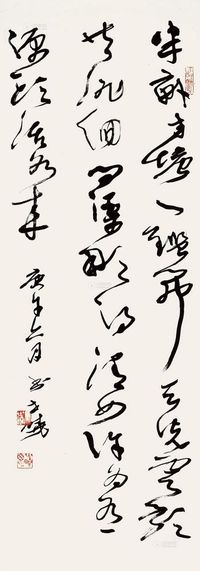 半畝方塘一鑑開天光雲影
共徘徊問渠那得清如許為有
源頭活水來 庚午六月